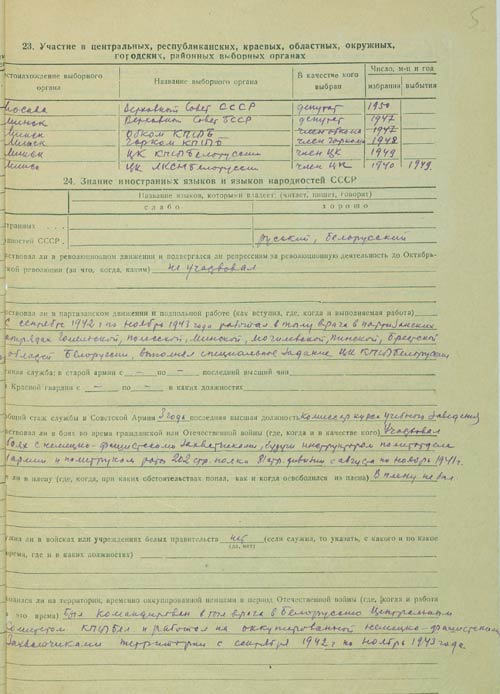 5
23. Участие в центральных, республиканских, краевых, областных, окружных,
городских, районных выборных органах
стонахождение выборного органа
Название выборного органа
В качестве кого выбран
Число, м-ц и год
избрания
выбытия
Москва Верховный Совет СССР депутат 1950
Минск Верховный Совет БССР депутат 1947
Минск Обком КП(б)Б член обкома 1947
Минск Горком КП(б)Б член горкома 1948
Минск ЦК КП(б) Белоруссии член ЦК 1949
Минск ЦК ЛКСМ Белоруссии член ЦК 1940 1949
24. Знание иностранных языков и языков народностей СССР
Название языков, которыми владеет: (читает, пишет, говорит)
слабо
хорошо
странных . . . .
ностей СССР . русский, белорусский
вствовал ли в революционном движении и подвергался ли репрессиям за революционную деятельность до Октябрь-
кой революции (за что, когда, каким) не участвовал
вствовал ли в партизанском движении и подпольной работе (как вступил, где, когда и выполняемая работа)
с сентября 1942 г по ноябрь 1943 года работал в тылу врага в партизанских
отрядах Гомельской, Полесской, Минской, Могилевской, Пинской, Брестской
областей Белоруссии, выполнял специальное задание ЦК КП(б) Белоруссии
нная служба: в старой армии с — по — последний высший чин
в Красной гвардии с — по — в каких должностях
общий стаж службы в Советской Армии 3 года последняя высшая должность комиссар курса учебного заведения
вствовал ли в боях во время гражданской или Отечественной войны (где, когда и в качестве кого) Участвовал
боях с немецко-фашистскими захватчиками, будучи инструктором политотдела
армии и политруком роты 202 стр. полка 81 стр. дивизии с августа по ноябрь 1941 г.
л ли в плену (где, когда, при каких обстоятельствах попал, как и когда освободился из плена) В плену не был
жил ли в войсках или учреждениях белых правительств нет (если служил, то указать, с какого и по какое
(да, нет)
время, где и в каких должностях)
ходился ли на территории, временно оккупированной немцами в период Отечественной войны (где, когда и работа
это время) Был командирован в тыл врага в Белоруссию Центральным
Комитетом КП(б)Бел и работал на оккупированной немецко-фашистскими
захватчиками территории с сентября 1942 г по ноябрь 1943 года